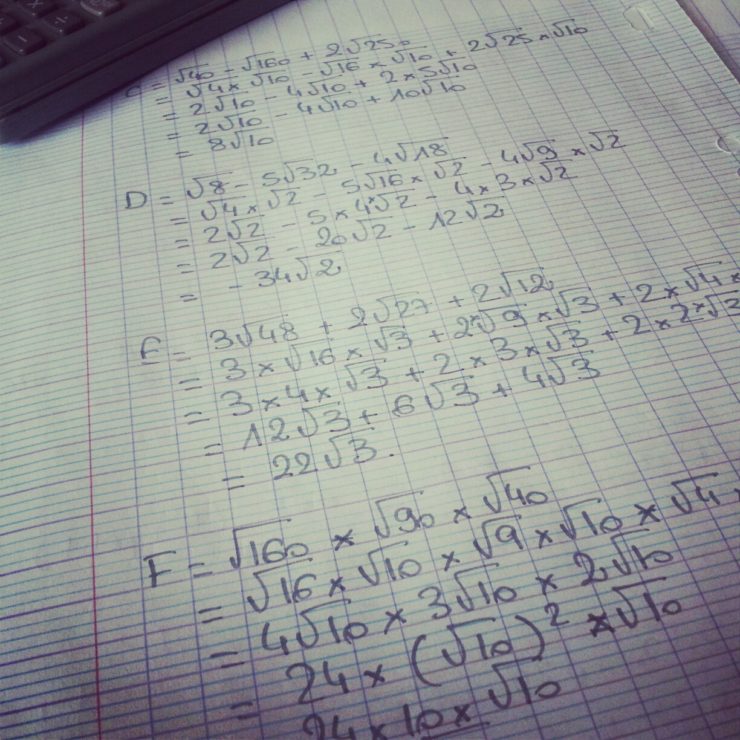 C = √40 - √160 + 2√250
= √4 × √10 - √16 × √10 + 2√25 × √10
= 2√10 - 4√10 + 2 × 5√10
= 2√10 - 4√10 + 10√10
= 8√10
D = √8 - 5√32 - 4√18
= √4 × √2 - 5√16 × √2 - 4√9 × √2
= 2√2 - 5 × 4√2 - 4 × 3 × √2
= 2√2 - 20√2 - 12√2
= - 34√2
E = 3√48 + 2√27 + 2√12
= 3 × √16 × √3 + 2×√9 × √3 + 2 × √4 ×
= 3 × 4 × √3 + 2 × 3 × √3 + 2 × 2 × √3
= 12√3 + 6√3 + 4√3
= 22√3.
F = √160 × √90 × √40
= √16 × √10 × √9 × √10 × √4
= 4√10 × 3√10 × 2√10
= 24 × (√10)² × √10
24 × 10 × √10